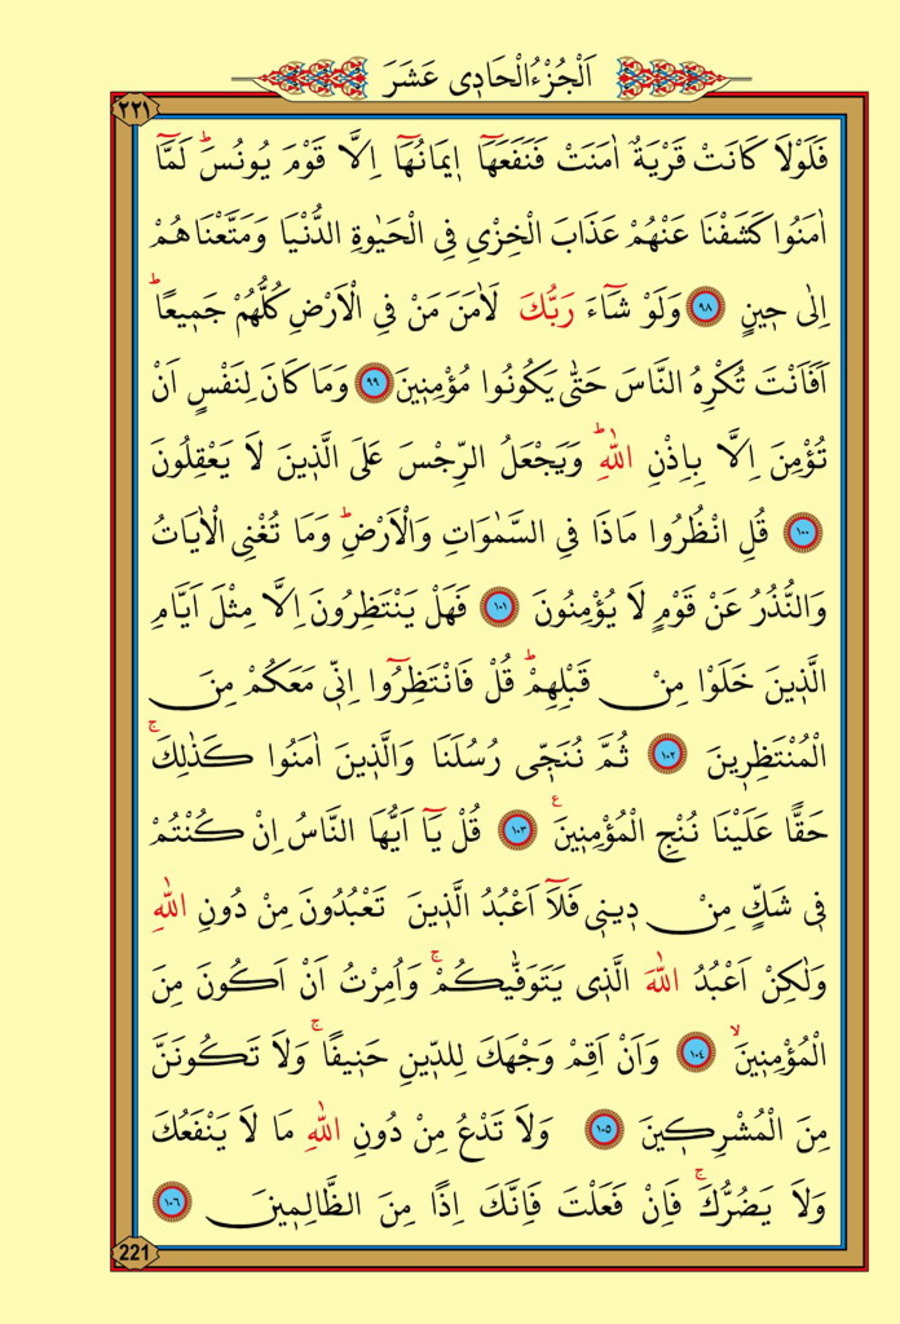 اَلْجُزْءُ الْحَادِى عَشَرَ
٢٢١
فَلَوْلَا كَانَتْ قَرْيَةٌ اٰمَنَتْ فَنَفَعَهَٓا ا۪يمَانُهَٓا اِلَّا قَوْمَ يُونُسَۜ لَمَّٓا
اٰمَنُوا كَشَفْنَا عَنْهُمْ عَذَابَ الْخِزْيِ فِي الْحَيٰوةِ الدُّنْيَا وَمَتَّعْنَاهُمْ
اِلٰى ح۪ينٍ ﴿٩٨﴾ وَلَوْ شَٓاءَ رَبُّكَ لَاٰمَنَ مَنْ فِي الْاَرْضِ كُلُّهُمْ جَم۪يعًاۜ
اَفَاَنْتَ تُكْرِهُ النَّاسَ حَتّٰى يَكُونُوا مُؤْمِن۪ينَ ﴿٩٩﴾ وَمَا كَانَ لِنَفْسٍ اَنْ
تُؤْمِنَ اِلَّا بِاِذْنِ اللّٰهِۜ وَيَجْعَلُ الرِّجْسَ عَلَى الَّذ۪ينَ لَا يَعْقِلُونَ
﴿١٠٠﴾ قُلِ انْظُرُوا مَاذَا فِي السَّمٰوَاتِ وَالْاَرْضِۜ وَمَا تُغْنِي الْاٰيَاتُ
وَالنُّذُرُ عَنْ قَوْمٍ لَا يُؤْمِنُونَ ﴿١٠١﴾ فَهَلْ يَنْتَظِرُونَ اِلَّا مِثْلَ اَيَّامِ
الَّذ۪ينَ خَلَوْا مِنْ قَبْلِهِمْۜ قُلْ فَانْتَظِرُٓوا اِنّ۪ي مَعَكُمْ مِنَ
الْمُنْتَظِر۪ينَ ﴿١٠٢﴾ ثُمَّ نُنَجّ۪ي رُسُلَنَا وَالَّذ۪ينَ اٰمَنُوا كَذٰلِكَۚ
حَقًّا عَلَيْنَا نُنْجِ الْمُؤْمِن۪ينَ ع ﴿١٠٣﴾ قُلْ يَٓا اَيُّهَا النَّاسُ اِنْ كُنْتُمْ
ف۪ي شَكٍّ مِنْ د۪ين۪ي فَلَٓا اَعْبُدُ الَّذ۪ينَ تَعْبُدُونَ مِنْ دُونِ اللّٰهِ
وَلٰكِنْ اَعْبُدُ اللّٰهَ الَّذ۪ي يَتَوَفّٰيكُمْۚ وَاُمِرْتُ اَنْ اَكُونَ مِنَ
الْمُؤْمِن۪ينَۙ ﴿١٠٤﴾ وَاَنْ اَقِمْ وَجْهَكَ لِلدّ۪ينِ حَن۪يفًاۚ وَلَا تَكُونَنَّ
مِنَ الْمُشْرِك۪ينَ ﴿١٠٥﴾ وَلَا تَدْعُ مِنْ دُونِ اللّٰهِ مَا لَا يَنْفَعُكَ
وَلَا يَضُرُّكَۚ فَاِنْ فَعَلْتَ فَاِنَّكَ اِذًا مِنَ الظَّالِم۪ينَ ﴿١٠٦﴾
221